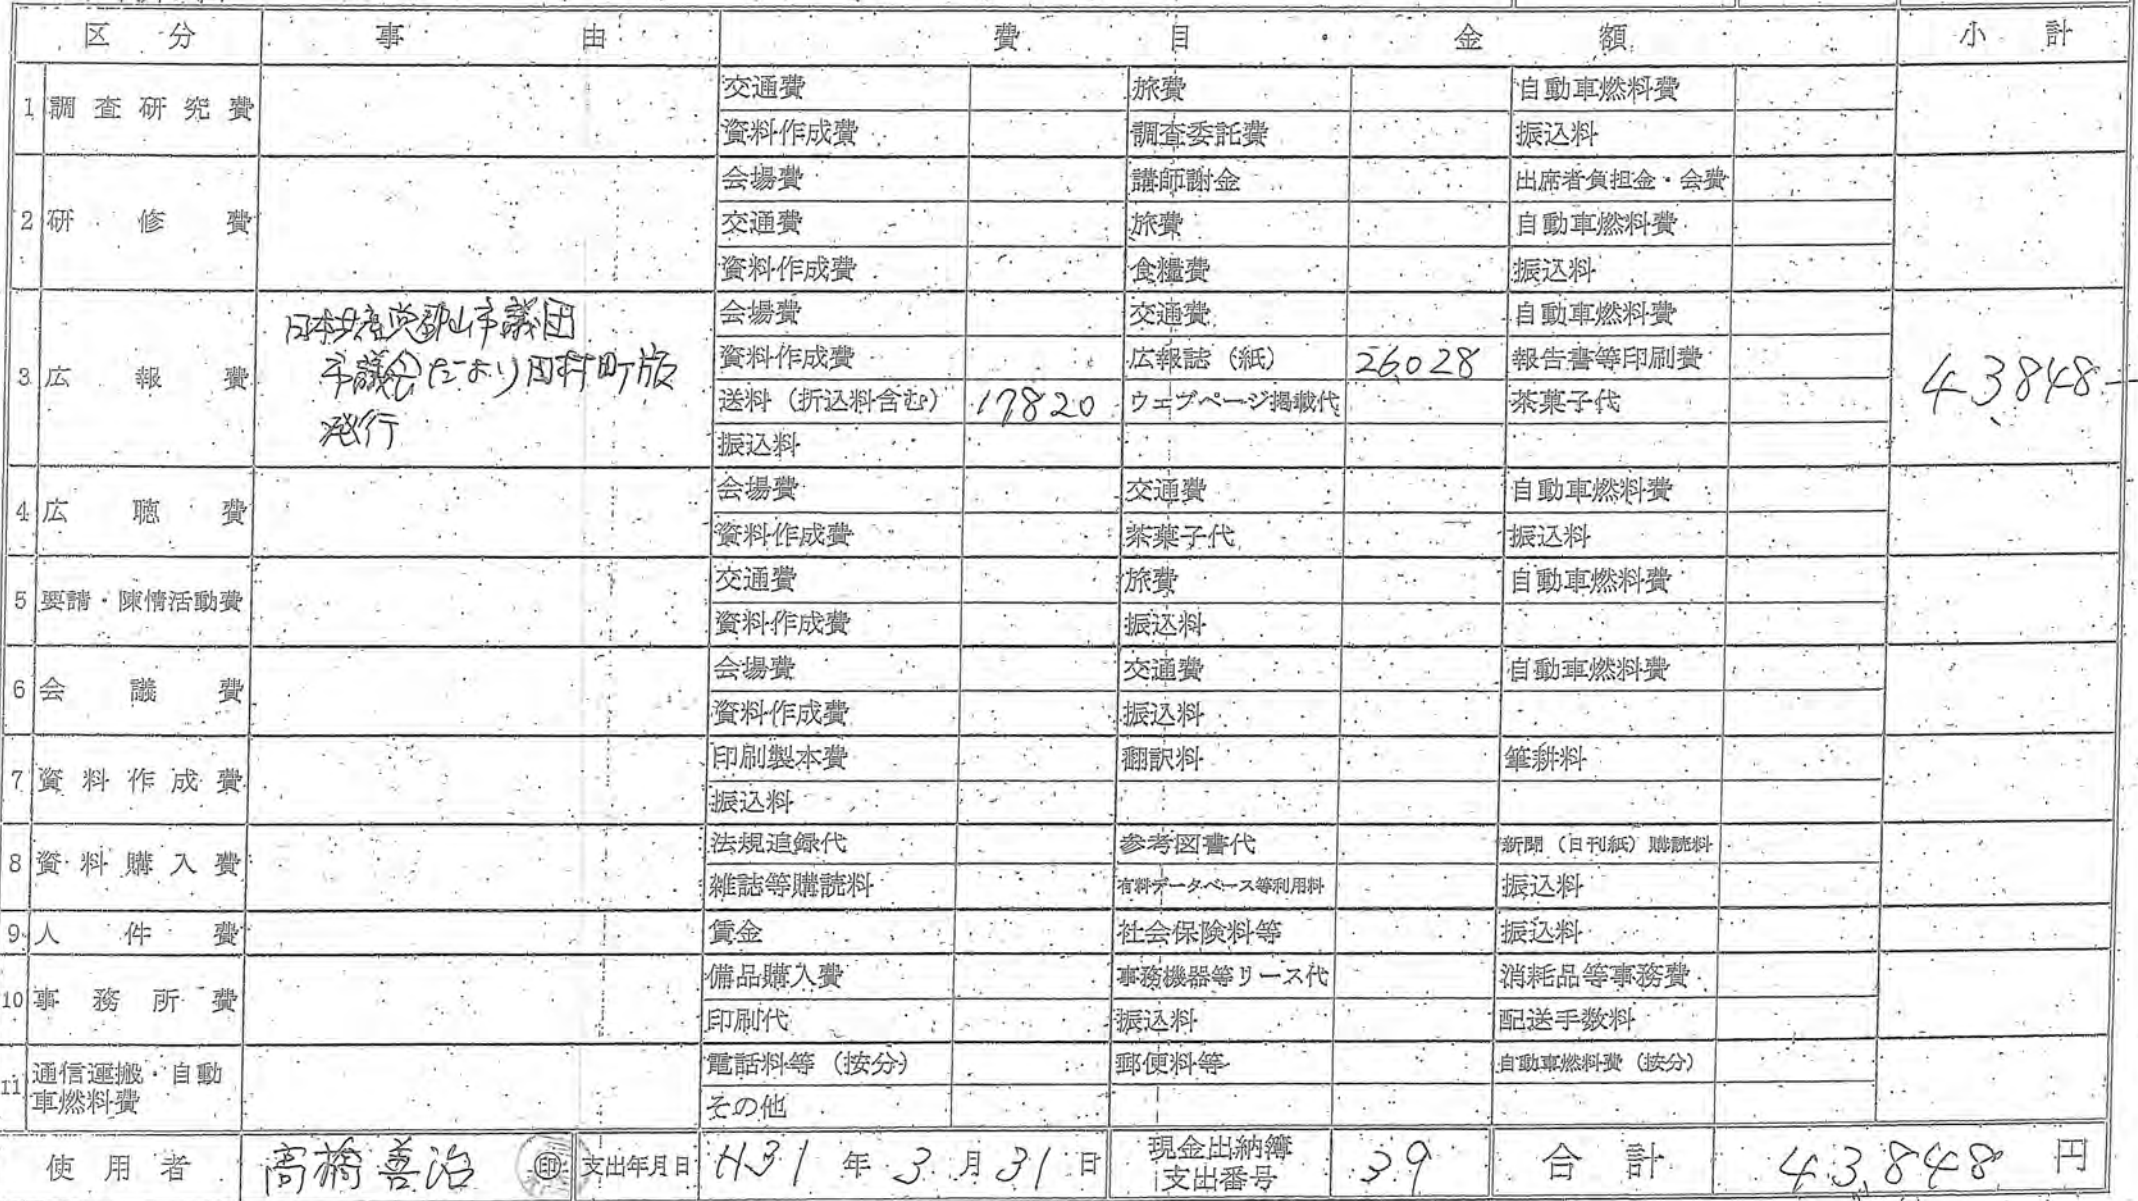 区分 事由 費目・金額 小計
1 調査研究費 交通費 旅費 自動車燃料費
資料作成費 調査委託費 振込料
2 研修費 会場費 講師謝金 出席者負担金・会費
交通費 旅費 自動車燃料費
資料作成費 食糧費 振込料
3 広報費 日本共産党郡山市議団 会場費 交通費 自動車燃料費
市議会だより田村町版 資料作成費 広報誌（紙） 26028 報告書等印刷費 43848
発行 送料（折込料含む） 17820 ウェブページ掲載代 茶菓子代
振込料
4 広聴費 会場費 交通費 自動車燃料費
資料作成費 茶菓子代 振込料
5 要請・陳情活動費 交通費 旅費 自動車燃料費
資料作成費 振込料
6 会議費 会場費 交通費 自動車燃料費
資料作成費 振込料
7 資料作成費 印刷製本費 翻訳料 筆耕料
振込料
8 資料購入費 法規追録代 参考図書代 新聞（日刊紙）購読料
雑誌等購読料 有料データベース等利用料 振込料
9 人件費 賃金 社会保険料等 振込料
10 事務所費 備品購入費 事務機器等リース代 消耗品等事務費
印刷代 振込料 配送手数料
11 通信運搬・自動 電話料等（按分） 郵便料等 自動車燃料費（按分）
車燃料費 その他
使用者 高橋善治 印 支出年月日 H31年3月31日 現金出納簿 39 合計 43,848円
支出番号